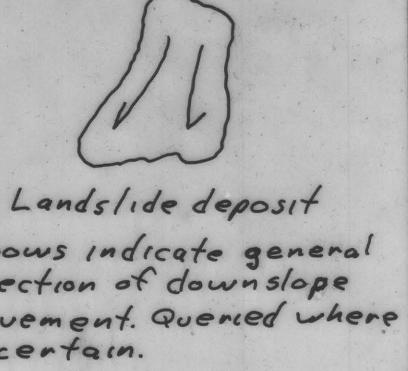 Landslide deposit
ows indicate general
ection of downslope
vement. Queried where
certain.